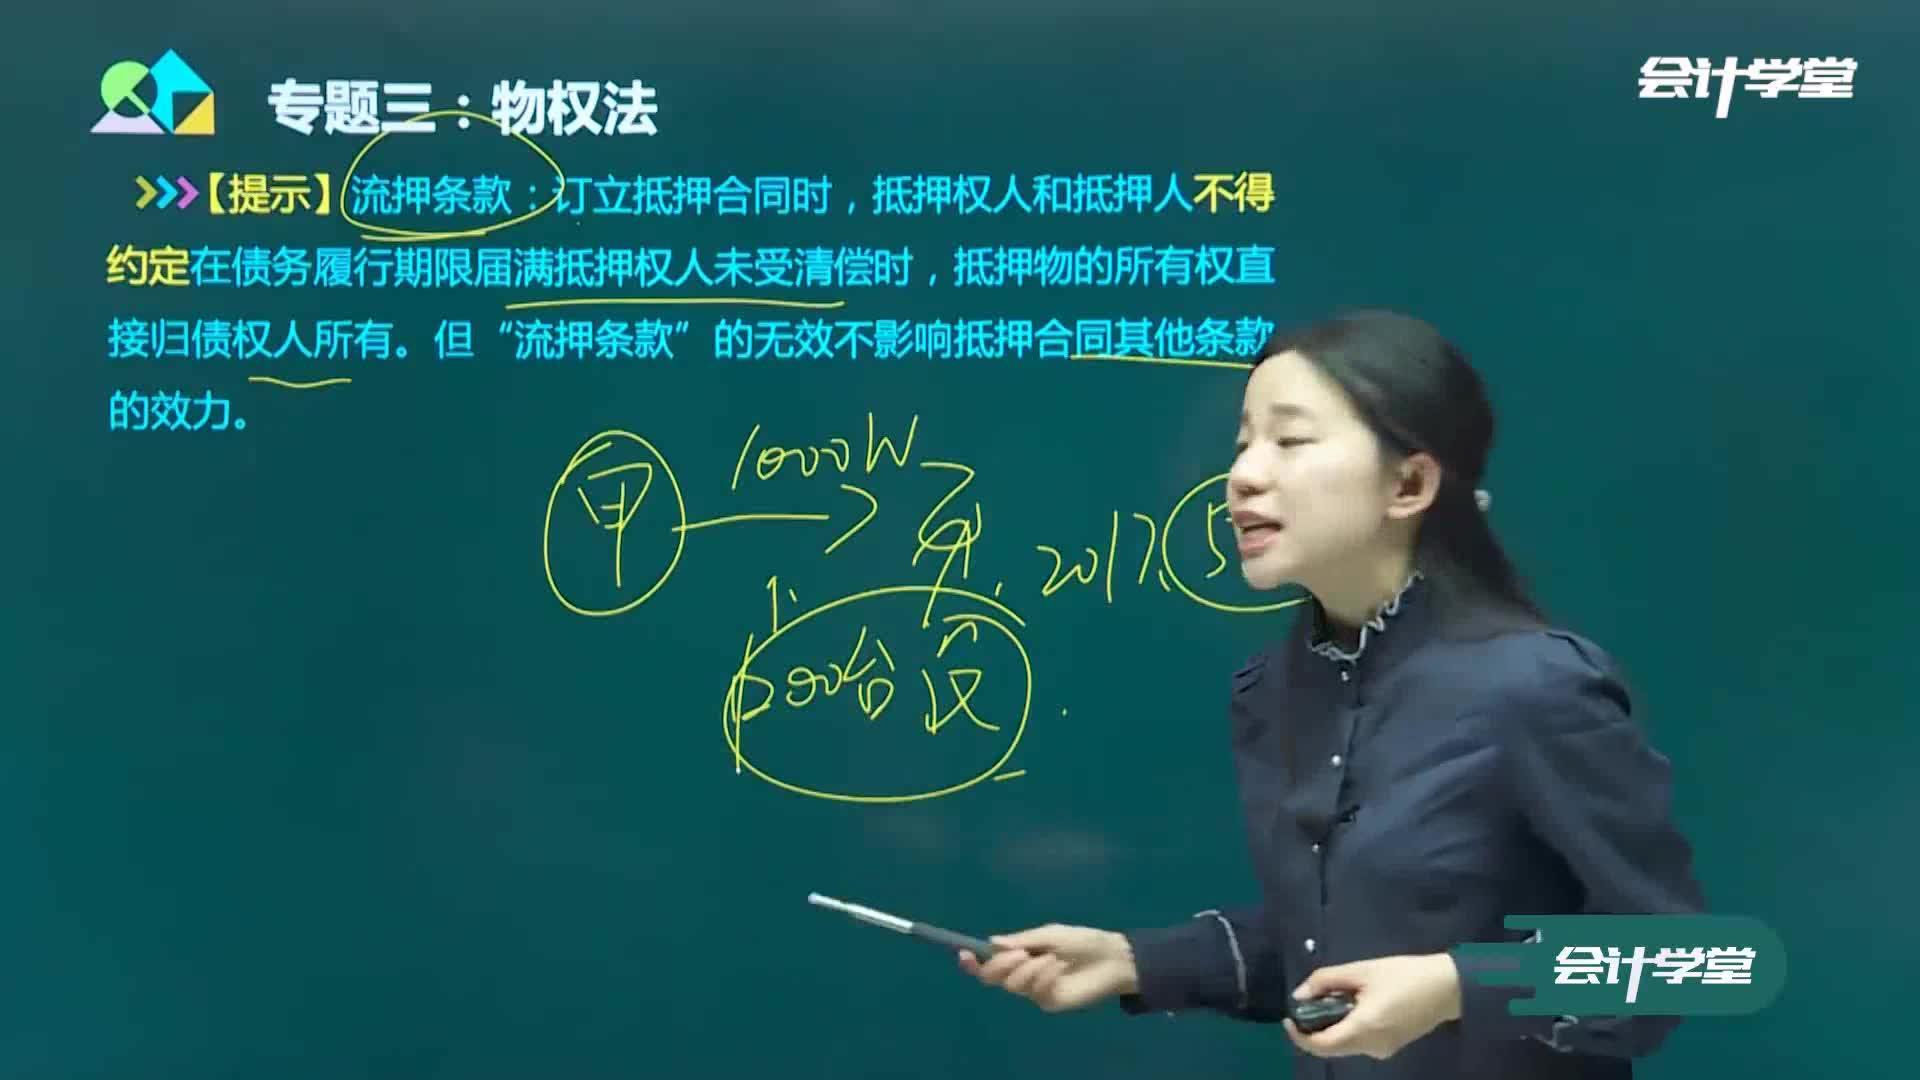 会计学堂
专题三：物权法
【提示】流押条款：订立抵押合同时，抵押权人和抵押人不得
约定在债务履行期限届满抵押权人未受清偿时，抵押物的所有权直
接归债权人所有。但“流押条款”的无效不影响抵押合同其他条款
的效力。
甲 1000W
2017.5
500台设
会计学堂